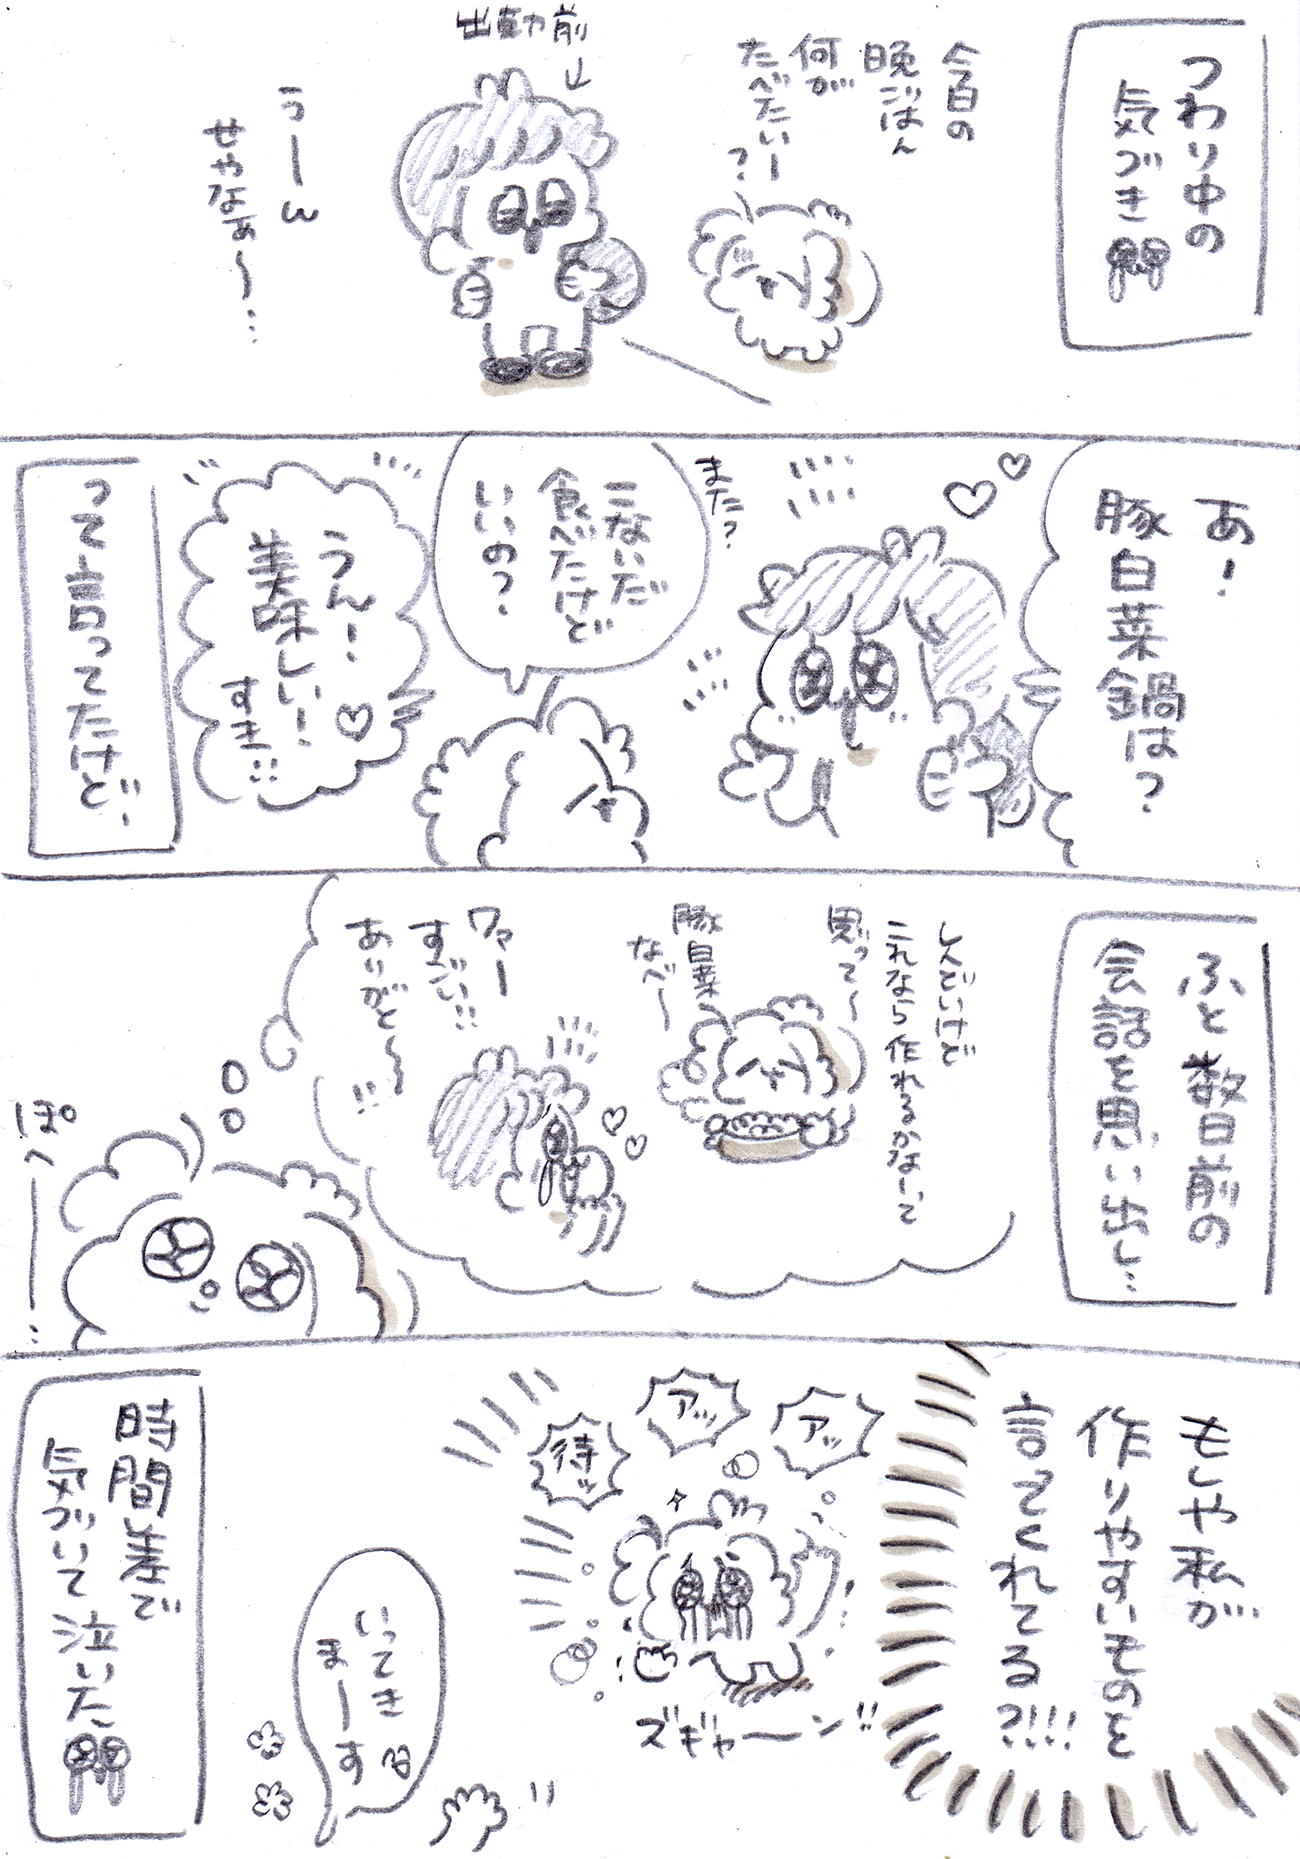 つわり中の
気づき
今日の
晩ごはん
何が
たべたいー
？
出勤前
うーん
せやなぁ〜…
あ！
豚白菜鍋は？
また？
こないだ
食べたけど
いいの？
うん！
美味しい！
すき!!
って言ってたけど…
ふと数日前の
会話を思い出し…
しんどいけど
これなら作れるかなーって
思って〜
豚白菜
なべ〜
ワァー
すごい!!
ありがと〜!!
ぽへーー…
もしや私が
作りやすいものを
言ってくれてる
?!!!
アッ
アッ
待ッ
ズギャーーン!!
いってき
まーす
時間差で
気づいて泣いた